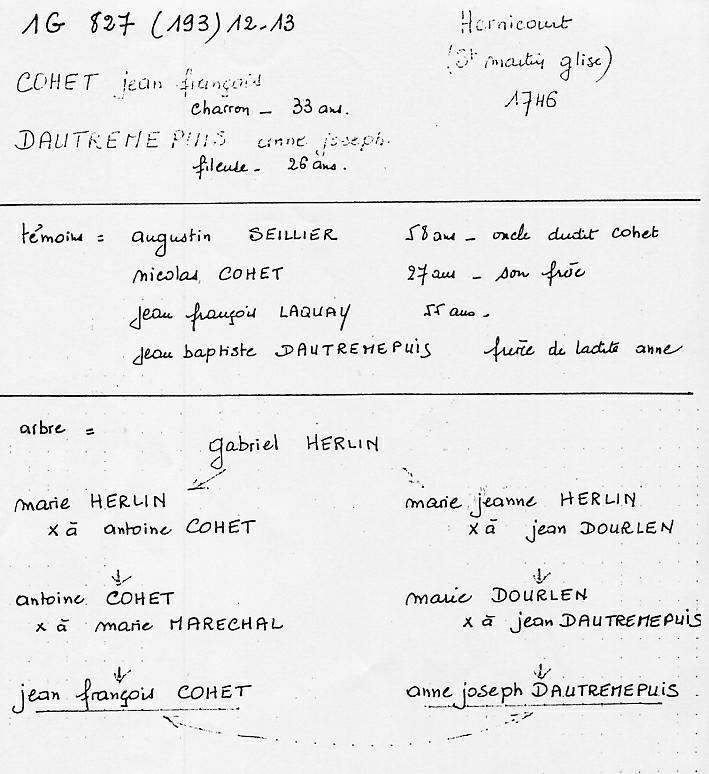 1G 827 (193) 12-13
Hernicourt
(St martin glise)
1746
COHET jean françois
charron - 33 ans.
DAUTREMEPUIS anne joseph.
fileuse - 26 ans.
témoins = augustin SEILLIER 58 ans - oncle dudit cohet
nicolas COHET 27 ans - son frère
jean françois LAQUAY 55 ans -
jean baptiste DAUTREMEPUIS frère de ladite anne
arbre =
gabriel HERLIN
marie HERLIN marie jeanne HERLIN
x à antoine COHET x à jean DOURLEN
antoine COHET marie DOURLEN
x à marie MARECHAL x à jean DAUTREMEPUIS
jean françois COHET anne joseph DAUTREMEPUIS